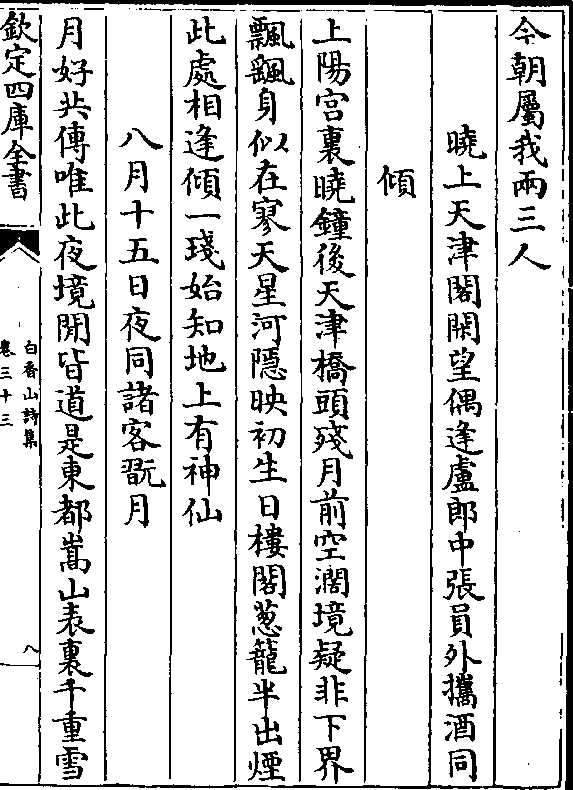 今朝屬我兩三人
曉上天津閣閑望偶逢盧郎中張員外攜酒同
傾
上陽宮裏曉鐘後天津橋頭殘月前空濶境疑非下界
飄颻身似在寥天星河隱映初生日樓閣葱籠半出煙
此處相逢傾一琖始知地上有神仙
八月十五日夜同諸客翫月
月好共傳唯此夜境閑皆道是東都嵩山表裏千重雪
欽定四庫全書
白香山詩集
卷三十三
八